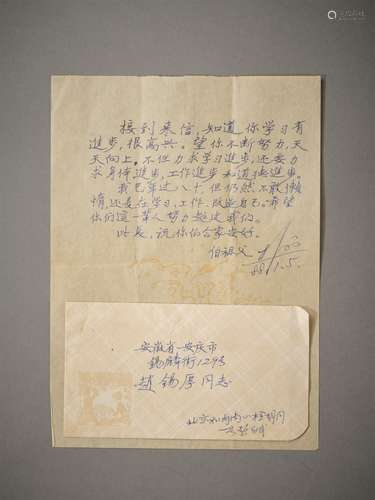 接到来信,知道你学习有
進步,很高兴。望你不断努力,天
天向上,不但力求学习進步,还要力
求身体進步,工作進步和道德進步。
我已年过八十,但仍然不敢懒
惰,还是在学习,工作,改造自己。希望
你们這一辈人努力超过我们。
此良,祝你们合家安好。
伯祖父
88/1.5.
安徽省安庆市
锡麟街129号
趙锡厚同志
北京和平